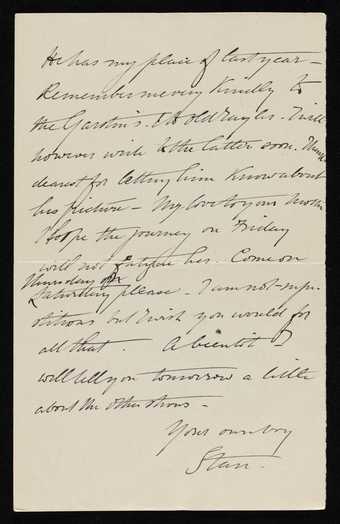 He has my place of last year –
Remember me very kindly to
the Gardin's. & to old Taylor. I will
however write to the latter soon. Thanks
dearest for letting him know about
his picture – My love to your Mother
I hope the journey on Friday
will not fatigue her. Come on
Thursday or
Saturday please – I am not super-
stitious but I wish you would for
all that A bientôt – I
will tell you tomorrow a little
about the other shows –
Your own boy
Stan.